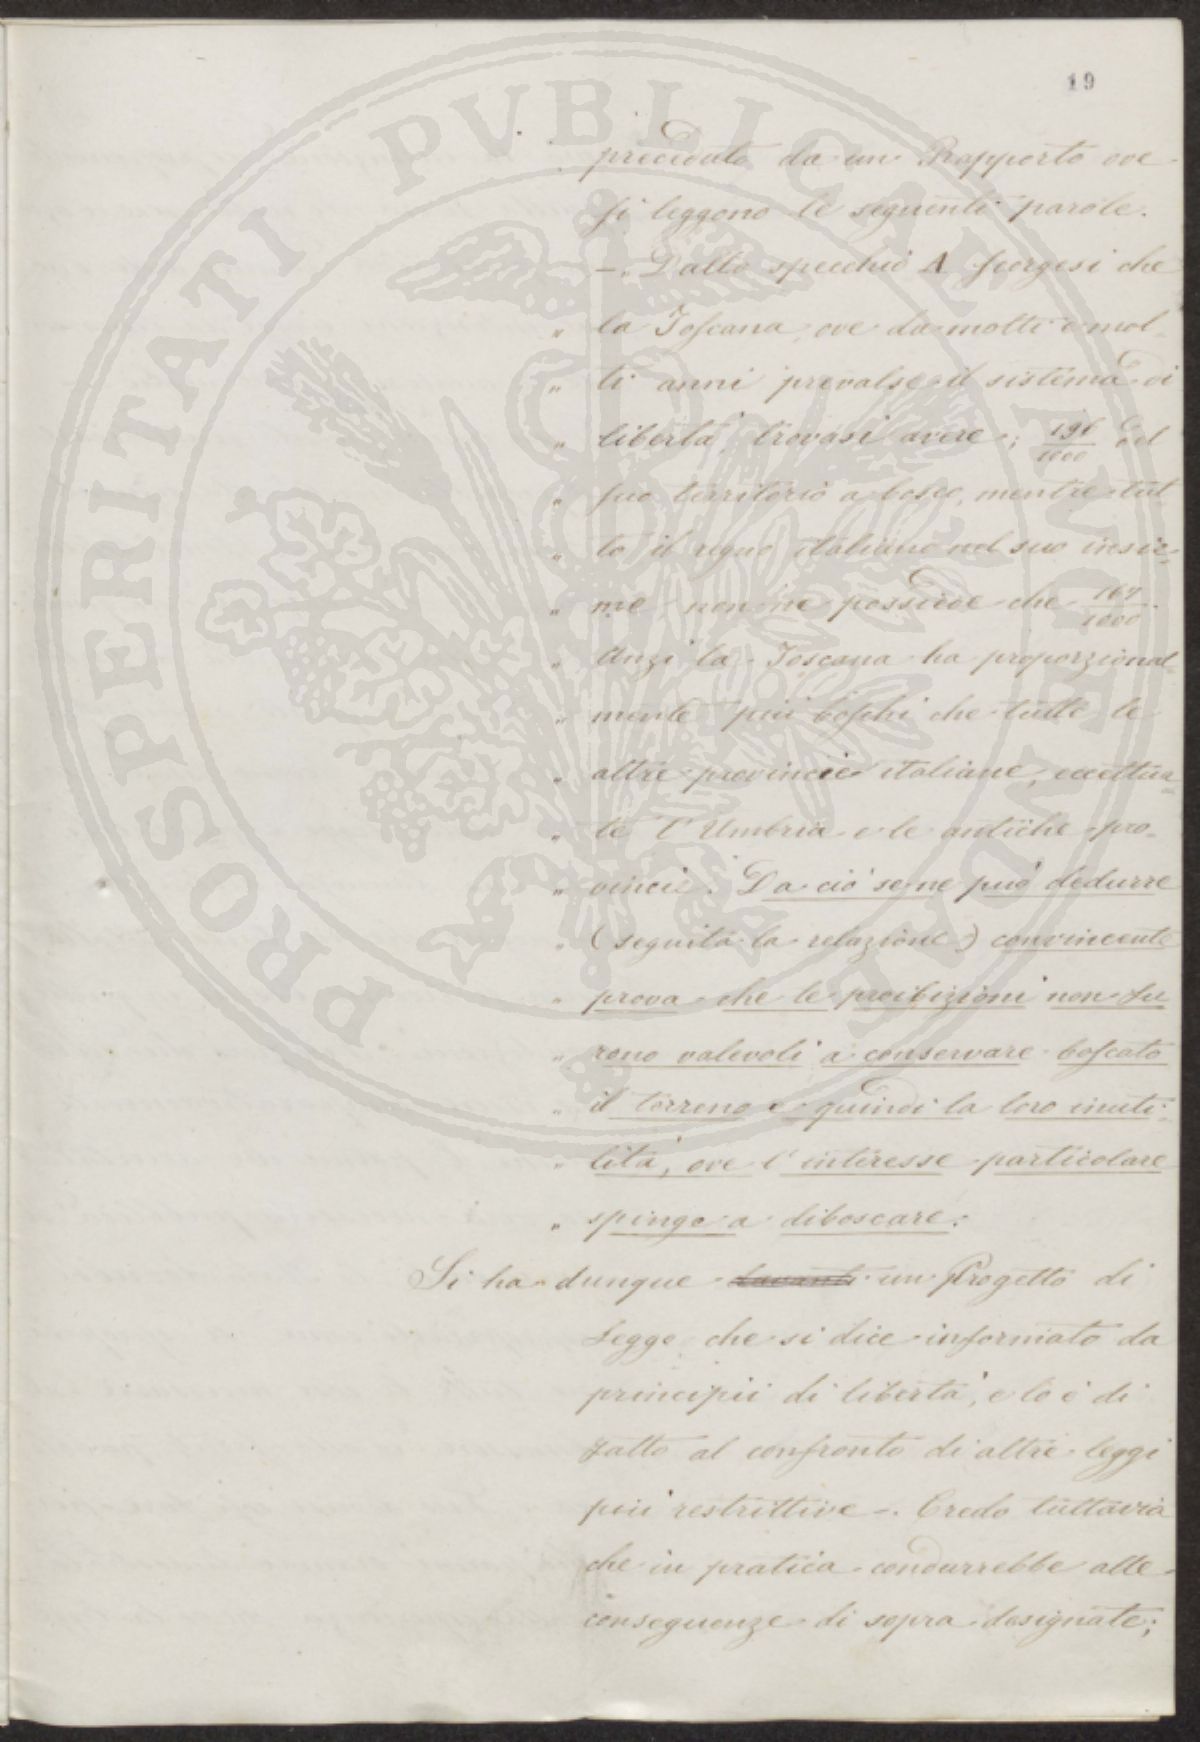 19
preceduto da un Rapporto ove
si leggono le seguenti parole.
—. Dallo specchio A scorgesi che
" la Toscana, ove da molti e mol-
" ti anni prevalse il sistema di
" libertà, trovasi avere ; 196/1000 del
" suo territorio a bosco, mentre tut
" to il regno italiano nel suo insie-
" me non ne possiede che 167/1000.
" Anzi la Toscana ha proporzional-
" mente più boschi che tutte le
" altre provincie italiane, eccettua
" te l'Umbria e le antiche pro-
" vincie. Da ciò se ne può dedurre
" (seguita la relazione) convincente
" prova che le proibizioni non fu
" rono valevoli a conservare boscato
" il terreno e quindi la loro inuti-
" lità, ove l'interesse particolare
" spinge a diboscare.
Si ha dunque davanti un Progetto di
Legge che si dice informato da
principii di libertà, e lo è di
fatto al confronto di altre leggi
più restrittive —. Credo tuttavia
che in pratica condurrebbe alle
conseguenze di sopra designate;
PROSPERITATI PVBLICAE AVGENDAE